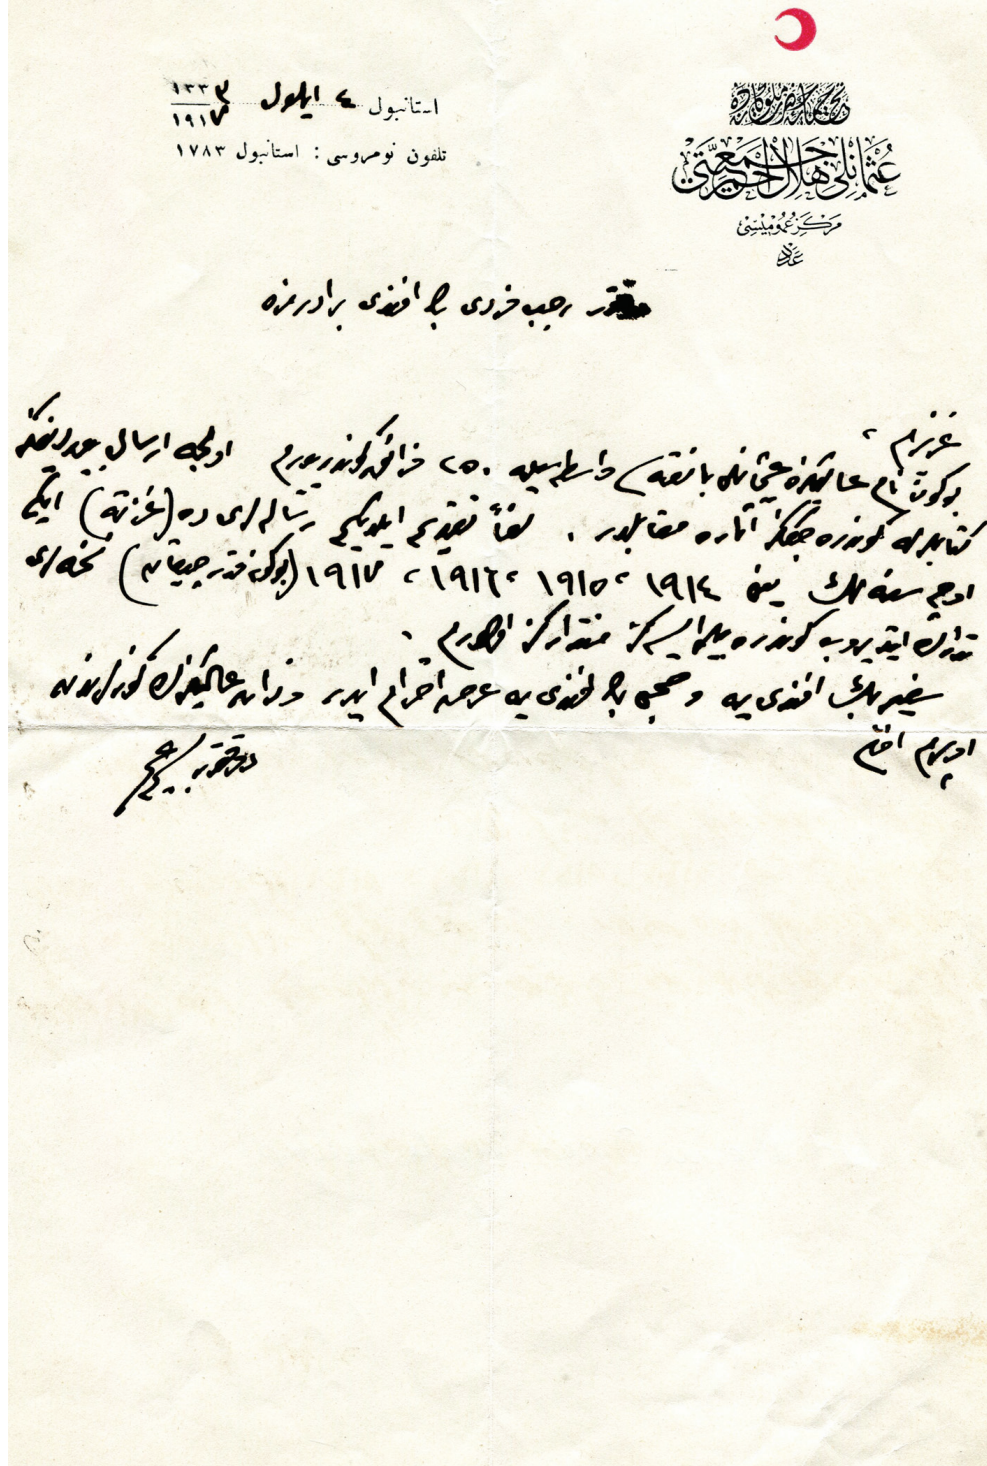 عثمانلی هلال احمر جمعیتی
مركز عمومیسی
عدد
استانبول ٤ ایلول ١٣٣٣
١٩١٧
تلفون نومروسی : استانبول ١٧٨٣
رجب فردی بك افندی برادرمزه
عزیزم ،
بوكون نام عالیكزه عثمانلی بانقه سی واسطه سیله ٢٥٠ فرانق كوندریورم اولجه ارسال بیوردیغكز
كتابلرله كوندره جككز آثاره مقابلدر . لفاً تقدیم ایلدیكم رساله لری ده (غزته) ایكی
اوچ سنه لك یعنی ١٩١٤ ، ١٩١٥ ، ١٩١٦ ، ١٩١٧ (بوكونه قدر چیقان) نسخه لری
تدارك ایتدیروب كوندره بیلیرایسه كز منتداركز اولورم .
سفیر بك افندی یه و بك افندی یه عرض احترام ایدر و ذات عالیكزك كوزلرندن
اوپرم افندم
دوقتور